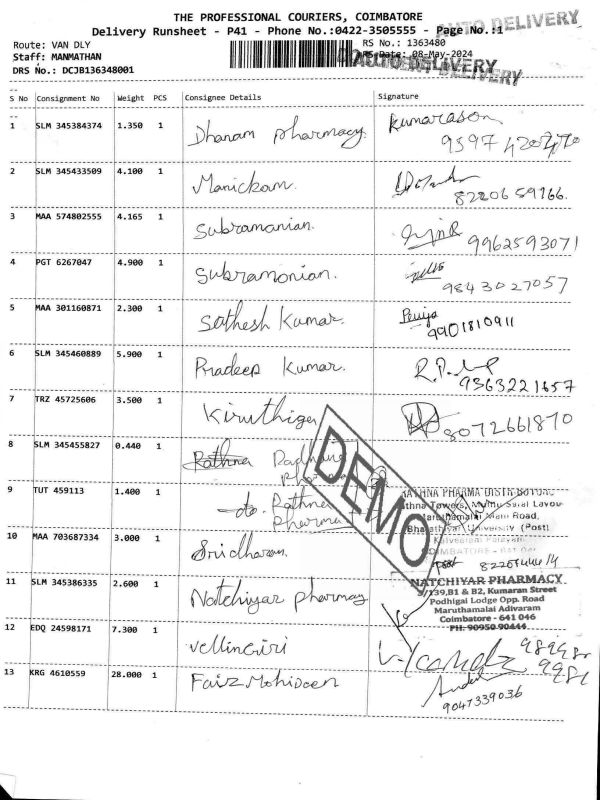 THE PROFESSIONAL COURIERS, COIMBATORE
Delivery Runsheet - P41 - Phone No.:0422-3505555 - Page No.:1
AUTO DELIVERY
Route: VAN DLY
RS No.: 1363480
Staff: MANMATHAN
RS Date: 08-May-2024
AUTO DELIVERY
DRS No.: DCJB136348001
DELIVERY
S No Consignment No Weight PCS Consignee Details Signature
1 SLM 345384374 1.350 1 Dhanam pharmacy. Kumarason
9597420470
2 SLM 345433509 4.100 1 Manickam.
8220659766.
3 MAA 574802555 4.165 1 Subramanian.
9962593071
4 PGT 6267047 4.900 1 Subramonian.
9843027057
5 MAA 301160871 2.300 1 Sathesh Kumar. Peniya
9901810911
6 SLM 345460889 5.900 1 Pradeep Kumar.
9363221657
7 TRZ 45725606 3.500 1 Kiruthiga
8072661870
8 SLM 345455827 0.440 1 Rathna
DEMO
9 TUT 459113 1.400 1 -do- Rathna
Pharma
RATHNA PHARMA DISTRIBUTORS
Road,
University (Post)
COIMBATORE
10 MAA 703687334 3.000 1 Sridharan.
11 SLM 345386335 2.600 1 Natchiyar pharmacy
NATCHIYAR PHARMACY
5/139,B1 & B2, Kumaran Street
Podhigai Lodge Opp. Road
Maruthamalai Adivaram
Coimbatore - 641 046
PH: 90950 90444
12 EDQ 24598171 7.300 1 vellingiri
13 KRG 4610559 28.000 1 Faiz Mohideen
9047339036